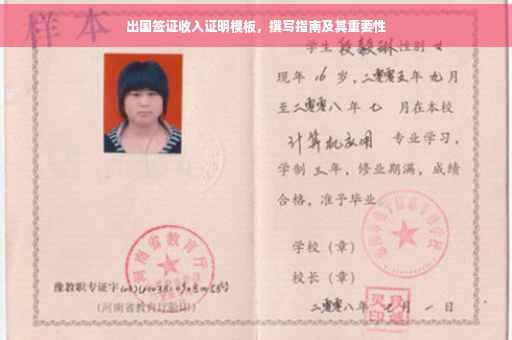 出国签证收入证明模板，撰写指南及其重要性
样本
学生段毅琳性别女
现年16岁，二零零五年九月
至二零零八年七月在本校
计算机应用 专业学习，
学制三年，修业期满，成绩
合格，准予毕业。
学校（章）
校长（章）
二零零八年七月一日
河南省教育厅
豫教职专证字
（河南省教育厅验印）